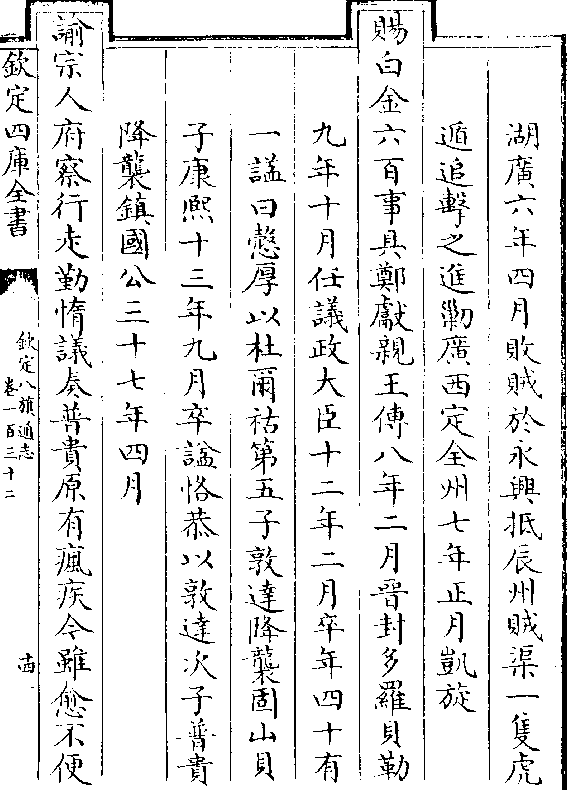 湖廣六年四月敗賊於永興抵辰州賊渠一隻虎
遁追擊之進勦廣西定全州七年正月凱旋
賜白金六百事具鄭獻親王傳八年二月晉封多羅貝勒
九年十月任議政大臣十二年二月卒年四十有
一諡曰慤厚以杜爾祜第五子敦達降襲固山貝
子康熙十三年九月卒諡恪恭以敦達次子普貴
降襲鎮國公三十七年四月
諭宗人府察行走勤惰議奏普貴原有瘋疾今雖愈不便
欽定四庫全書
欽定八旗通志
卷一百三十二
十四